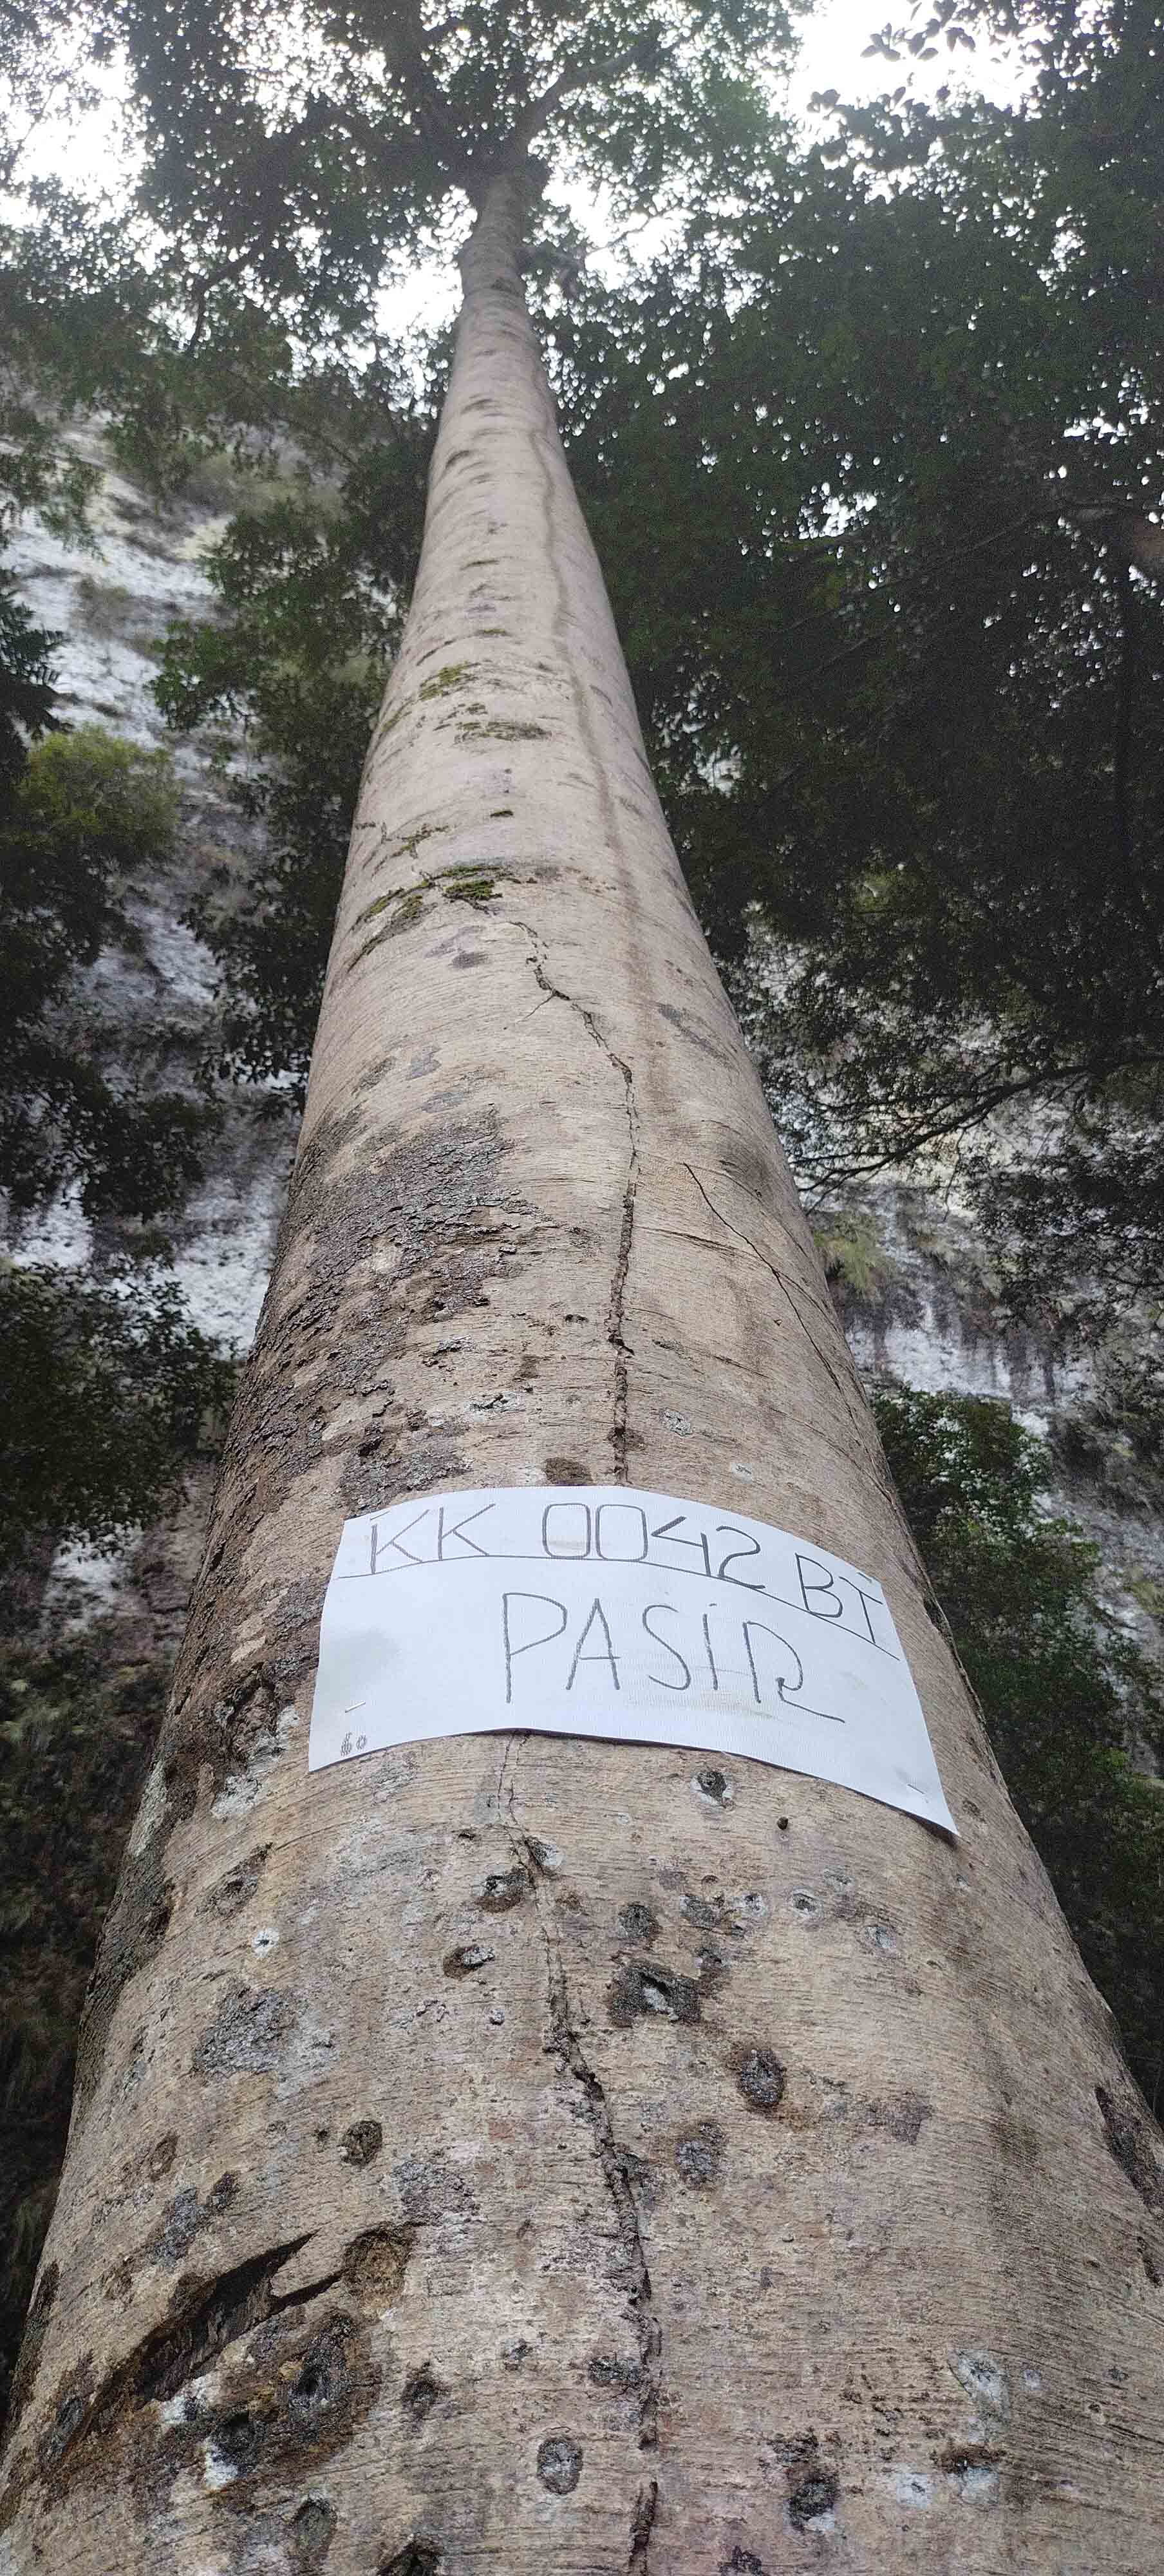 KK 0042 BT
PASiR
60